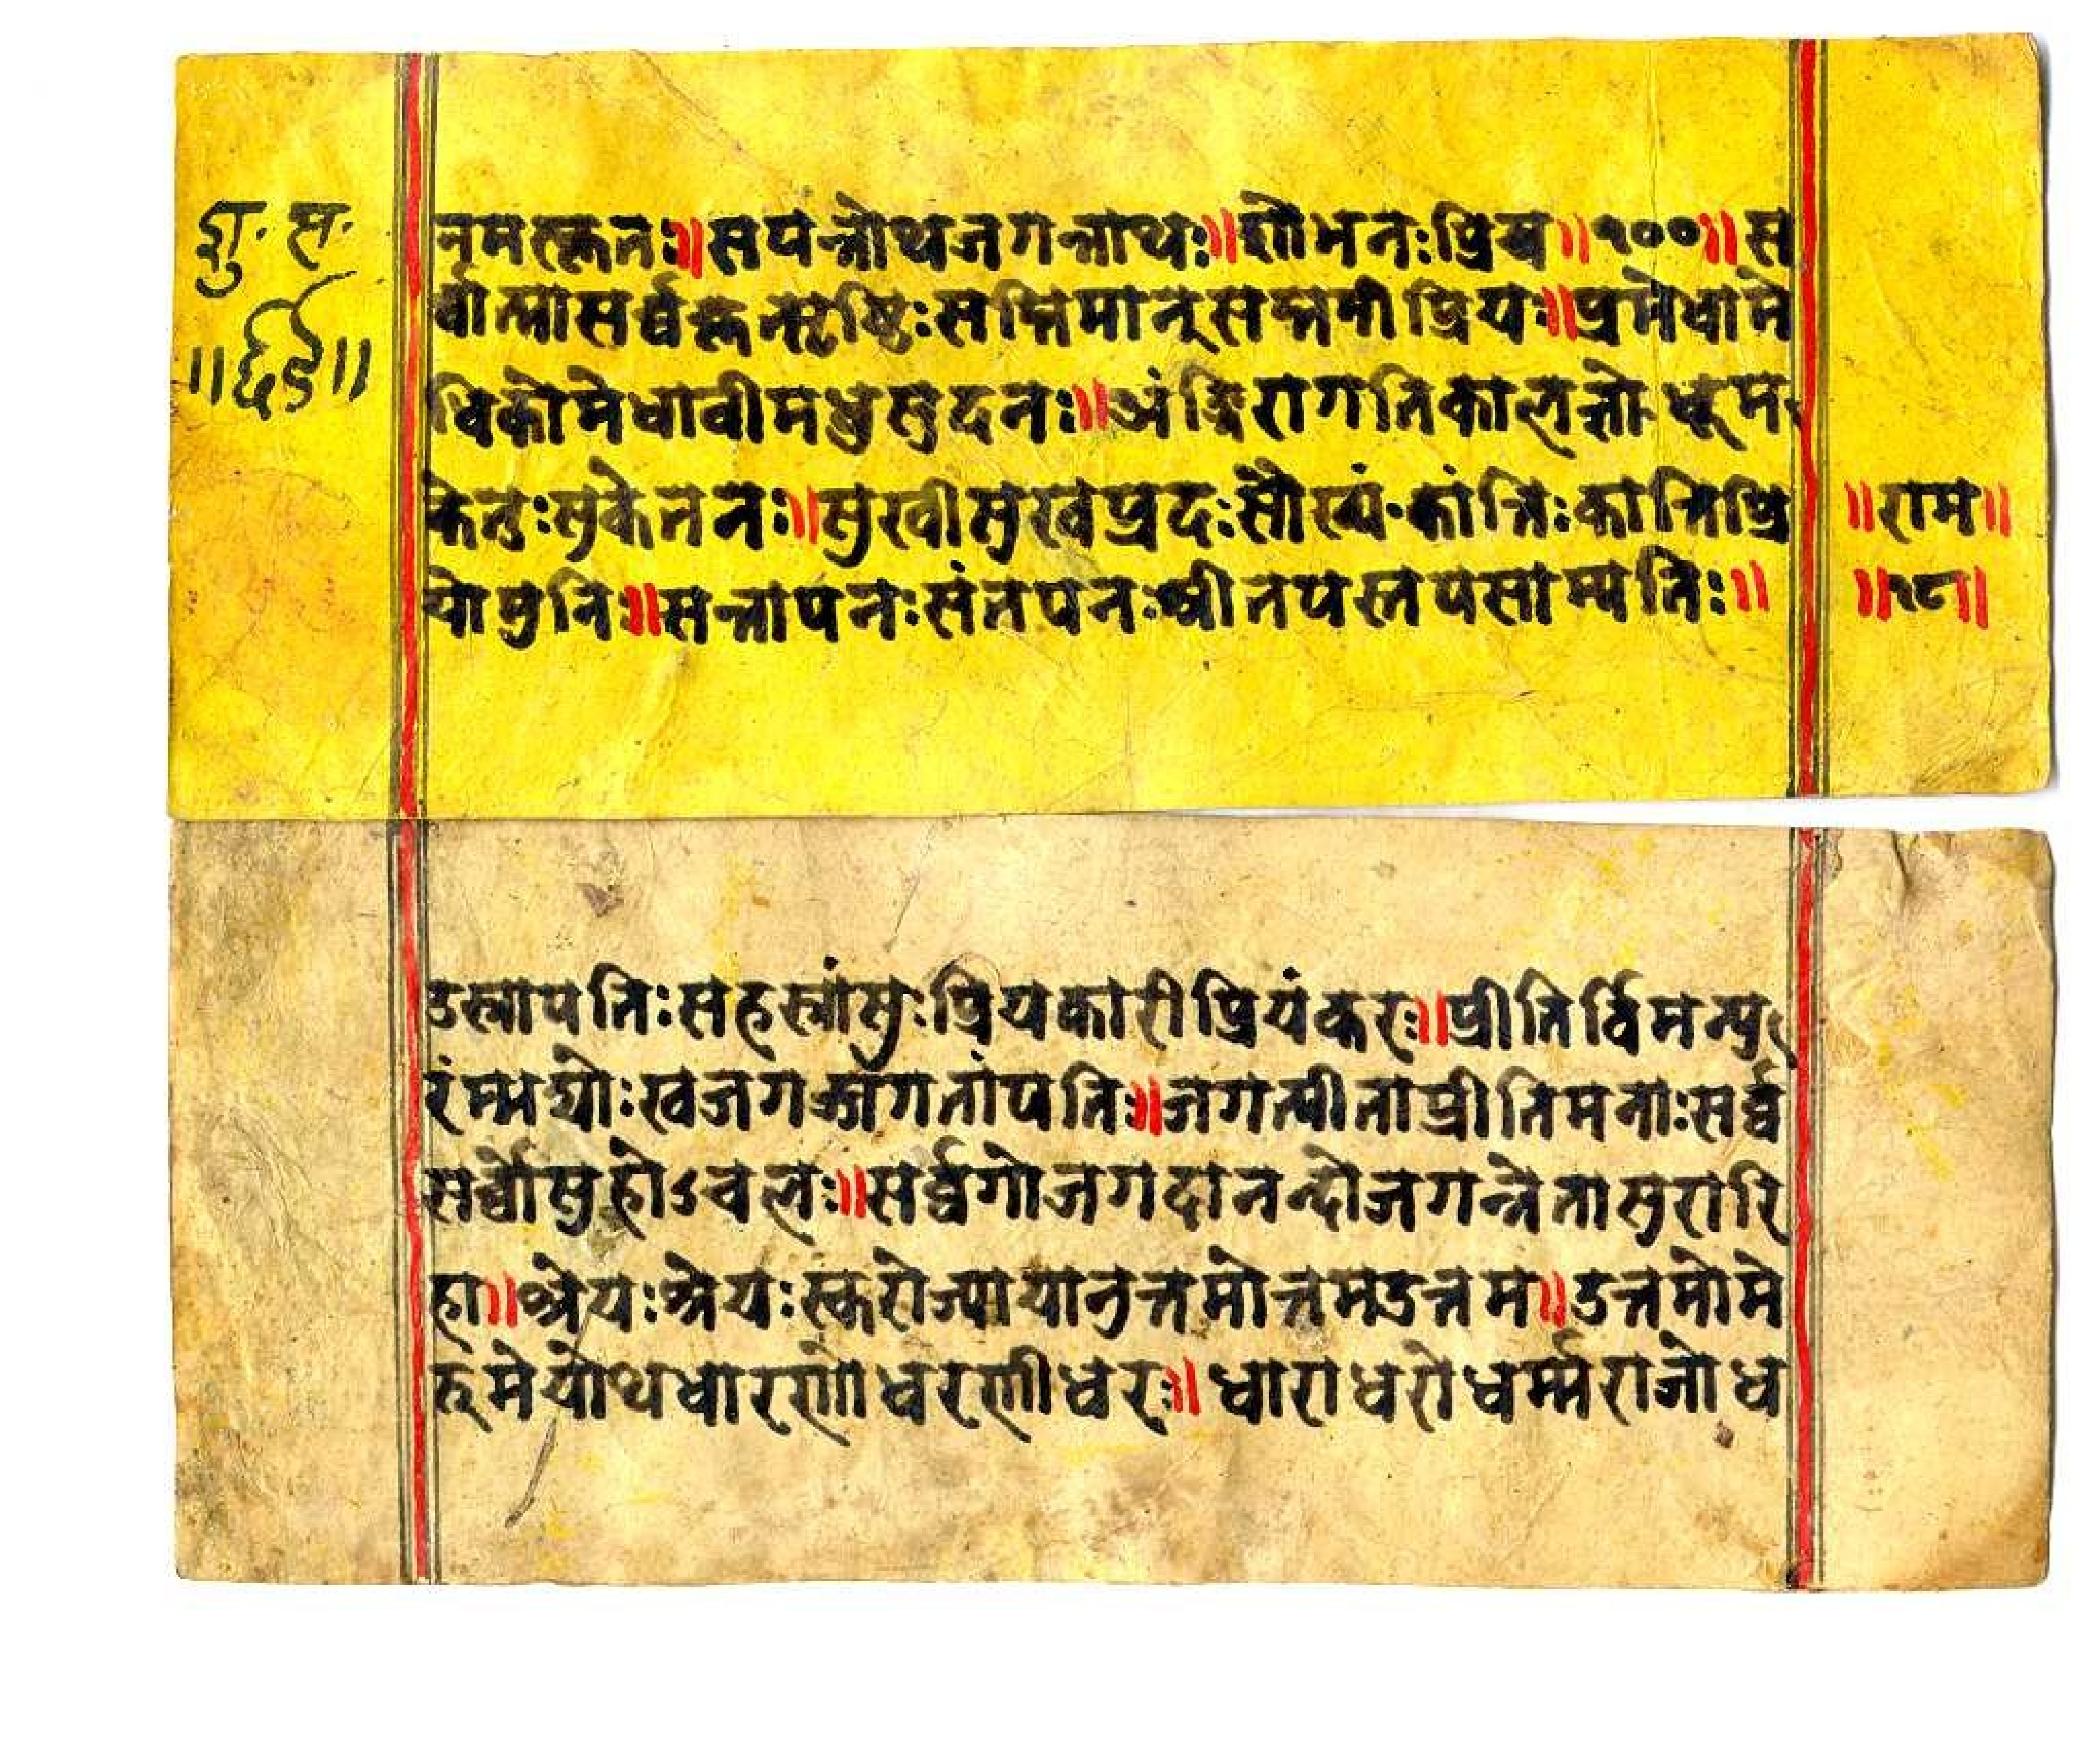 नमस्कृतः॥सपन्नोथजगन्नाथः॥शोभनःप्रिय॥१००॥स
र्वात्मासर्व्वकृत्सृष्टिःसप्तिमान्सप्तमीप्रियः॥प्रमेधामे
धिकोमेधावीमधुसुदनः॥अंङ्गिरागतिकालज्ञोधूम
केतुःसुकेतनः॥सुखीसुखप्रदःसौख्यंकांतिःकान्तिप्रि
योमुनिः॥सन्तापनःसंतपनःश्रीतपस्तपसाम्पतिः॥
॥राम॥
॥१८॥
उस्त्रापतिःसहस्त्रांसुःप्रियकारीप्रियंकरः॥प्रीतिर्विमन्यु
रंम्भद्योःखजगज्जगतांपतिः॥जगत्पीताप्रीतिमनाःसर्व्व
सर्व्वोसुहोऽचलः॥सर्व्वगोजगदानन्दोजगन्नेतासुरारि
हा॥श्रेयःश्रेयःस्करोज्यायानुत्तमोत्तमउत्तम॥उत्तमोमे
रूमेयोथधारणोधरणीधरः॥धाराधरोधर्म्मराजोध